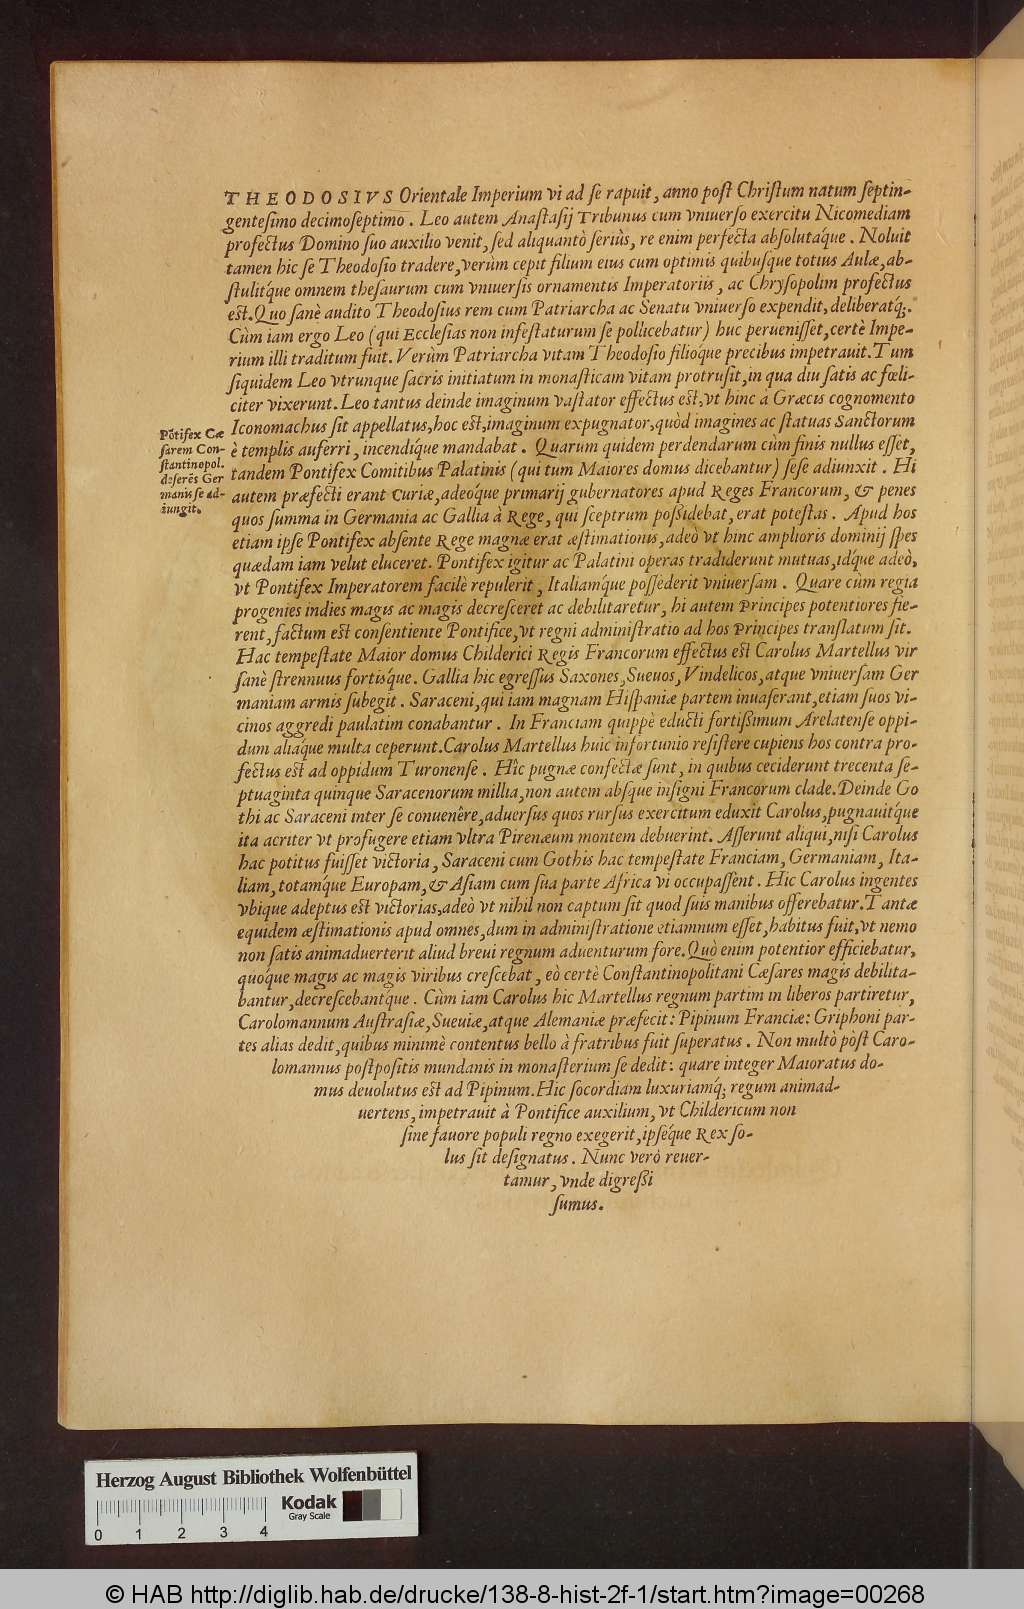 THEODOSIVS Orientale Imperium vi ad se rapuit, anno post Christum natum septin-
gentesimo decimoseptimo. Leo autem Anastasij Tribunus cum vniuerso exercitu Nicomediam
profectus Domino suo auxilio venit, sed aliquantò seriùs, re enim perfecta absolutaq́ue. Noluit
tamen hic se Theodosio tradere, verùm cepit filium eius cum optimis quibusque totius Aulæ, ab-
stulitq́ue omnem thesaurum cum vniuersis ornamentis Imperatoriis, ac Chrysopolim profectus
est. Quo sanè audito Theodosius rem cum Patriarcha ac Senatu vniuerso expendit, deliberatq́;.
Cùm iam ergo Leo (qui Ecclesias non infestaturum se pollicebatur) huc peruenisset, certè Impe-
rium illi traditum fuit. Verùm Patriarcha vitam Theodosio filioq́ue precibus impetrauit. Tum
siquidem Leo vtrunque sacris initiatum in monasticam vitam protrusit, in qua diu satis ac fœli-
citer vixerunt. Leo tantus deinde imaginum vastator effectus est, vt hinc a Græcis cognomento
Iconomachus sit appellatus, hoc est, imaginum expugnator, quòd imagines ac statuas Sanctorum
è templis auferri, incendiq́ue mandabat. Quarum quidem perdendarum cùm finis nullus esset,
tandem Pontifex Comitibus Palatinis (qui tum Maiores domus dicebantur) sese adiunxit. Hi
autem præfecti erant Curiæ, adeoq́ue primarij gubernatores apud Reges Francorum, & penes
quos summa in Germania ac Gallia à Rege, qui sceptrum possidebat, erat potestas. Apud hos
etiam ipse Pontifex absente Rege magnæ erat æstimationis, adeò vt hinc amplioris dominij spes
quædam iam velut eluceret. Pontifex igitur ac Palatini operas tradiderunt mutuas, idq́ue adeò,
vt Pontifex Imperatorem facilè repulerit, Italiamq́ue possederit vniuersam. Quare cùm regia
progenies indies magis ac magis decresceret ac debilitaretur, hi autem Principes potentiores fie-
rent, factum est consentiente Pontifice, vt regni administratio ad hos Principes translatum sit.
Hac tempestate Maior domus Childerici Regis Francorum effectus est Carolus Martellus vir
sanè strennuus fortisq́ue. Gallia hic egressus Saxones, Sueuos, Vindelicos, atque vniuersam Ger
maniam armis subegit. Saraceni, qui iam magnam Hispaniæ partem inuaserant, etiam suos vi-
cinos aggredi paulatim conabantur. In Franciam quippè educti fortissimum Arelatense oppi-
dum aliáque multa ceperunt. Carolus Martellus huic infortunio resistere cupiens hos contra pro-
fectus est ad oppidum Turonense. Hîc pugnæ confectæ sunt, in quibus ceciderunt trecenta se-
ptuaginta quinque Saracenorum millia, non autem absque insigni Francorum clade. Deinde Go
thi ac Saraceni inter se conuenêre, aduersus quos rursus exercitum eduxit Carolus, pugnauitq́ue
ita acriter vt profugere etiam vltra Pirenæum montem debuerint. Asserunt aliqui, nisi Carolus
hac potitus fuisset victoria, Saraceni cum Gothis hac tempestate Franciam, Germaniam, Ita-
liam, totamq́ue Europam, & Asiam cum sua parte Africa vi occupassent. Hic Carolus ingentes
vbique adeptus est victorias, adeò vt nihil non captum sit quod suis manibus offerebatur. Tantæ
equidem æstimationis apud omnes, dum in administratione etiamnum esset, habitus fuit, vt nemo
non satis animaduerterit aliud breui regnum aduenturum fore. Quò enim potentior efficiebatur,
quoq́ue magis ac magis viribus crescebat, eò certè Constantinopolitani Cæsares magis debilita-
bantur, decrescebantq́ue. Cùm iam Carolus hic Martellus regnum partim in liberos partiretur,
Carolomannum Austrasiæ, Sueuiæ, atque Alemaniæ præfecit: Pipinum Franciæ: Griphoni par-
tes alias dedit, quibus minimè contentus bello à fratribus fuit superatus. Non multò pòst Caro-
lomannus postpositis mundanis in monasterium se dedit: quare integer Maioratus do-
mus deuolutus est ad Pipinum. Hic socordiam luxuriamq́; regum animad-
uertens, impetrauit à Pontifice auxilium, vt Childericum non
sine fauore populi regno exegerit, ipseq́ue Rex so-
lus sit designatus. Nunc verò reuer-
tamur, vnde digressi
sumus.
Põtifex Cæ
sarem Con-
stantinopol.
deserẽs Ger
manis se ad-
iungit.
Herzog August Bibliothek Wolfenbüttel
Kodak
Gray Scale
0 1 2 3 4
© HAB http://diglib.hab.de/drucke/138-8-hist-2f-1/start.htm?image=00268